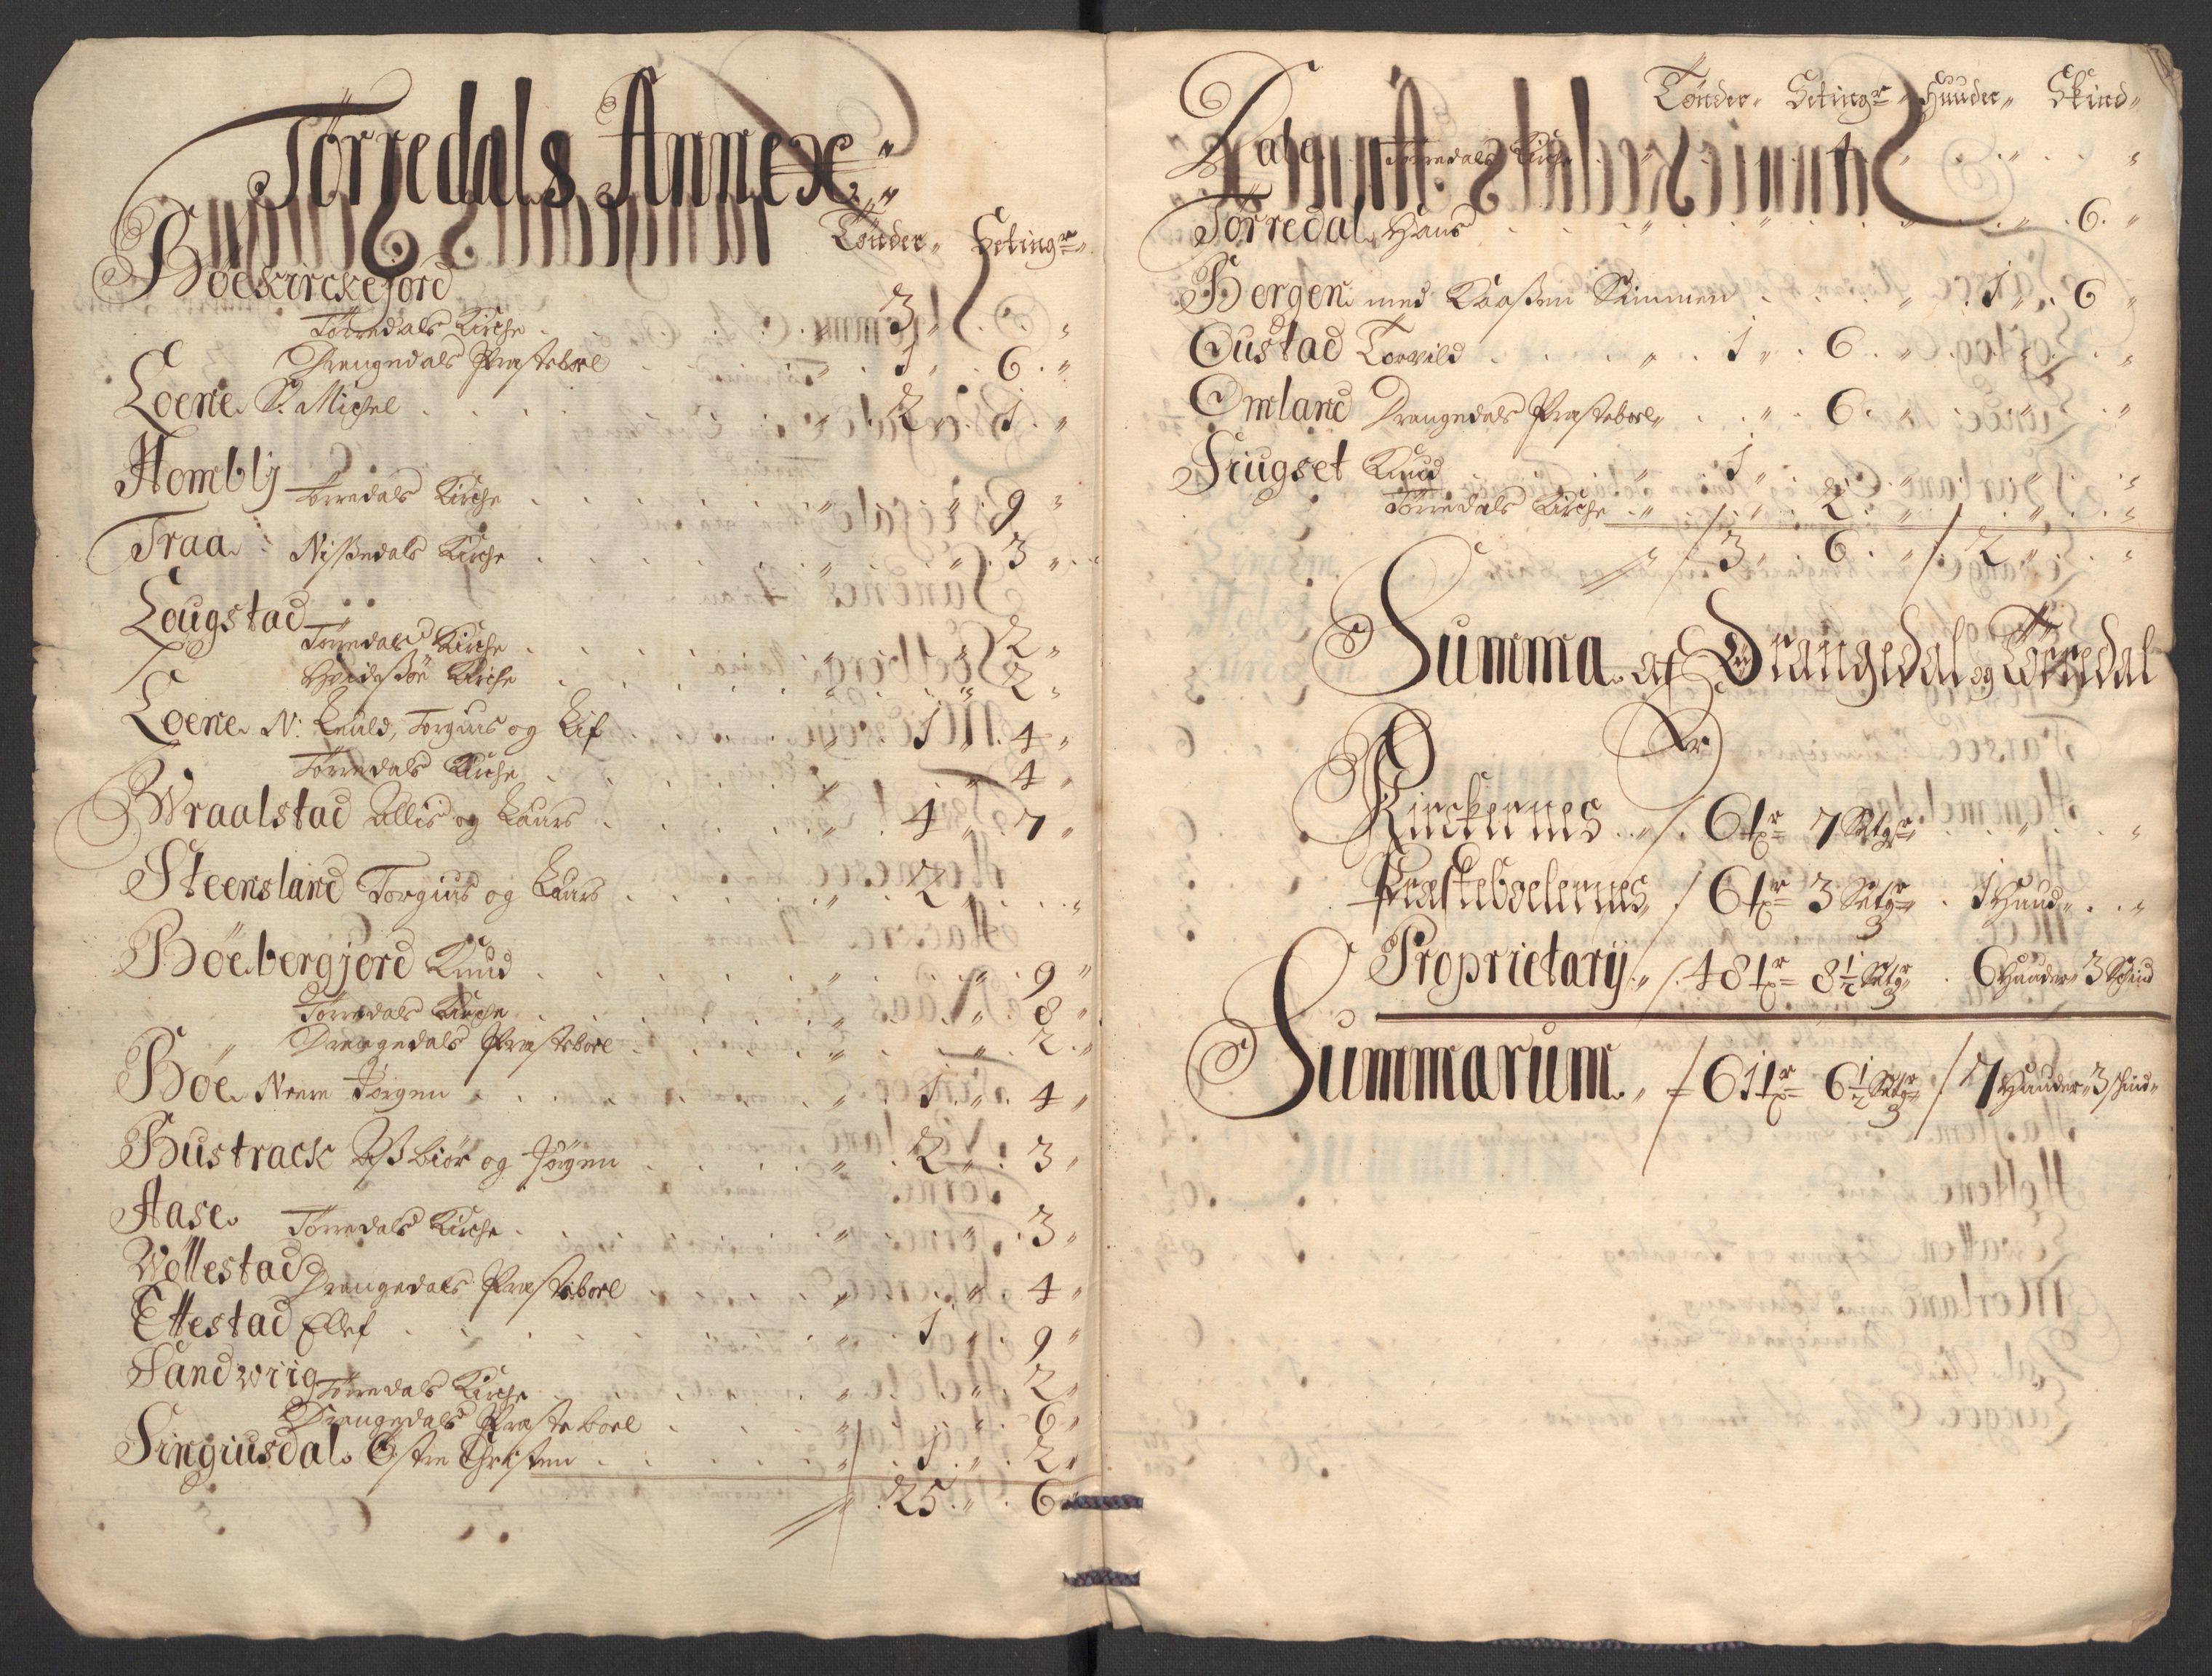 Törredals Annexe
Tönder Setingr
Böekirckejord
Törredals Kirche 3
Drengedals Præsteboel 1 6
Loene S. Michel 2 1
Hombly Törredals Kirche 9
Traa Nissedals Kirche 3
Lougstad
Törredals Kirche 2
Hvidesöe Kirche 2
Loene N: Leuld, Torgius og Lif 1 4
Törredals Kirche 4
Wraalstad Allis og Laurs 4 7
Steensland Torgius og Laurs 2
Böebergjord Knud 9
Törredals Kirche 8
Drengedals Præsteboel 2
Böe Nerre Jörgen 1 4
Bustrack Asbiör og Jörgen 2 3
Aase Törredals Kirche 3
Wöllestad Drengedals Præsteboel 4
Ettestad Ellef 1 9
Sandwiig Törredals Kirche 2
Drengedals Præsteboel 6
Singiusdal Östre Christen 1 2
25 6
Tönder Setingr Huuder Skind
Dale Törredals Kirche 4
Törredal Hans 6
Bergen med Kaassen Simmen 1 6
Oustad Torvild 1 6
Omland Drangedals Præsteboel 6
Siugset Knud 1
Törredals Kirche 2
3 6 2
Summa af Drangedal og Törredal
Er
Kirckernes 6 tr 7 Setgr
Præsteboelernes 6 tr 3 Setgr 1 Huud
Proprietarij 48 tr 8 1/2 Setgr 6 Huuder 3 Skind
Summarum 61 tr 6 1/2 Setgr 7 Huuder 3 skind